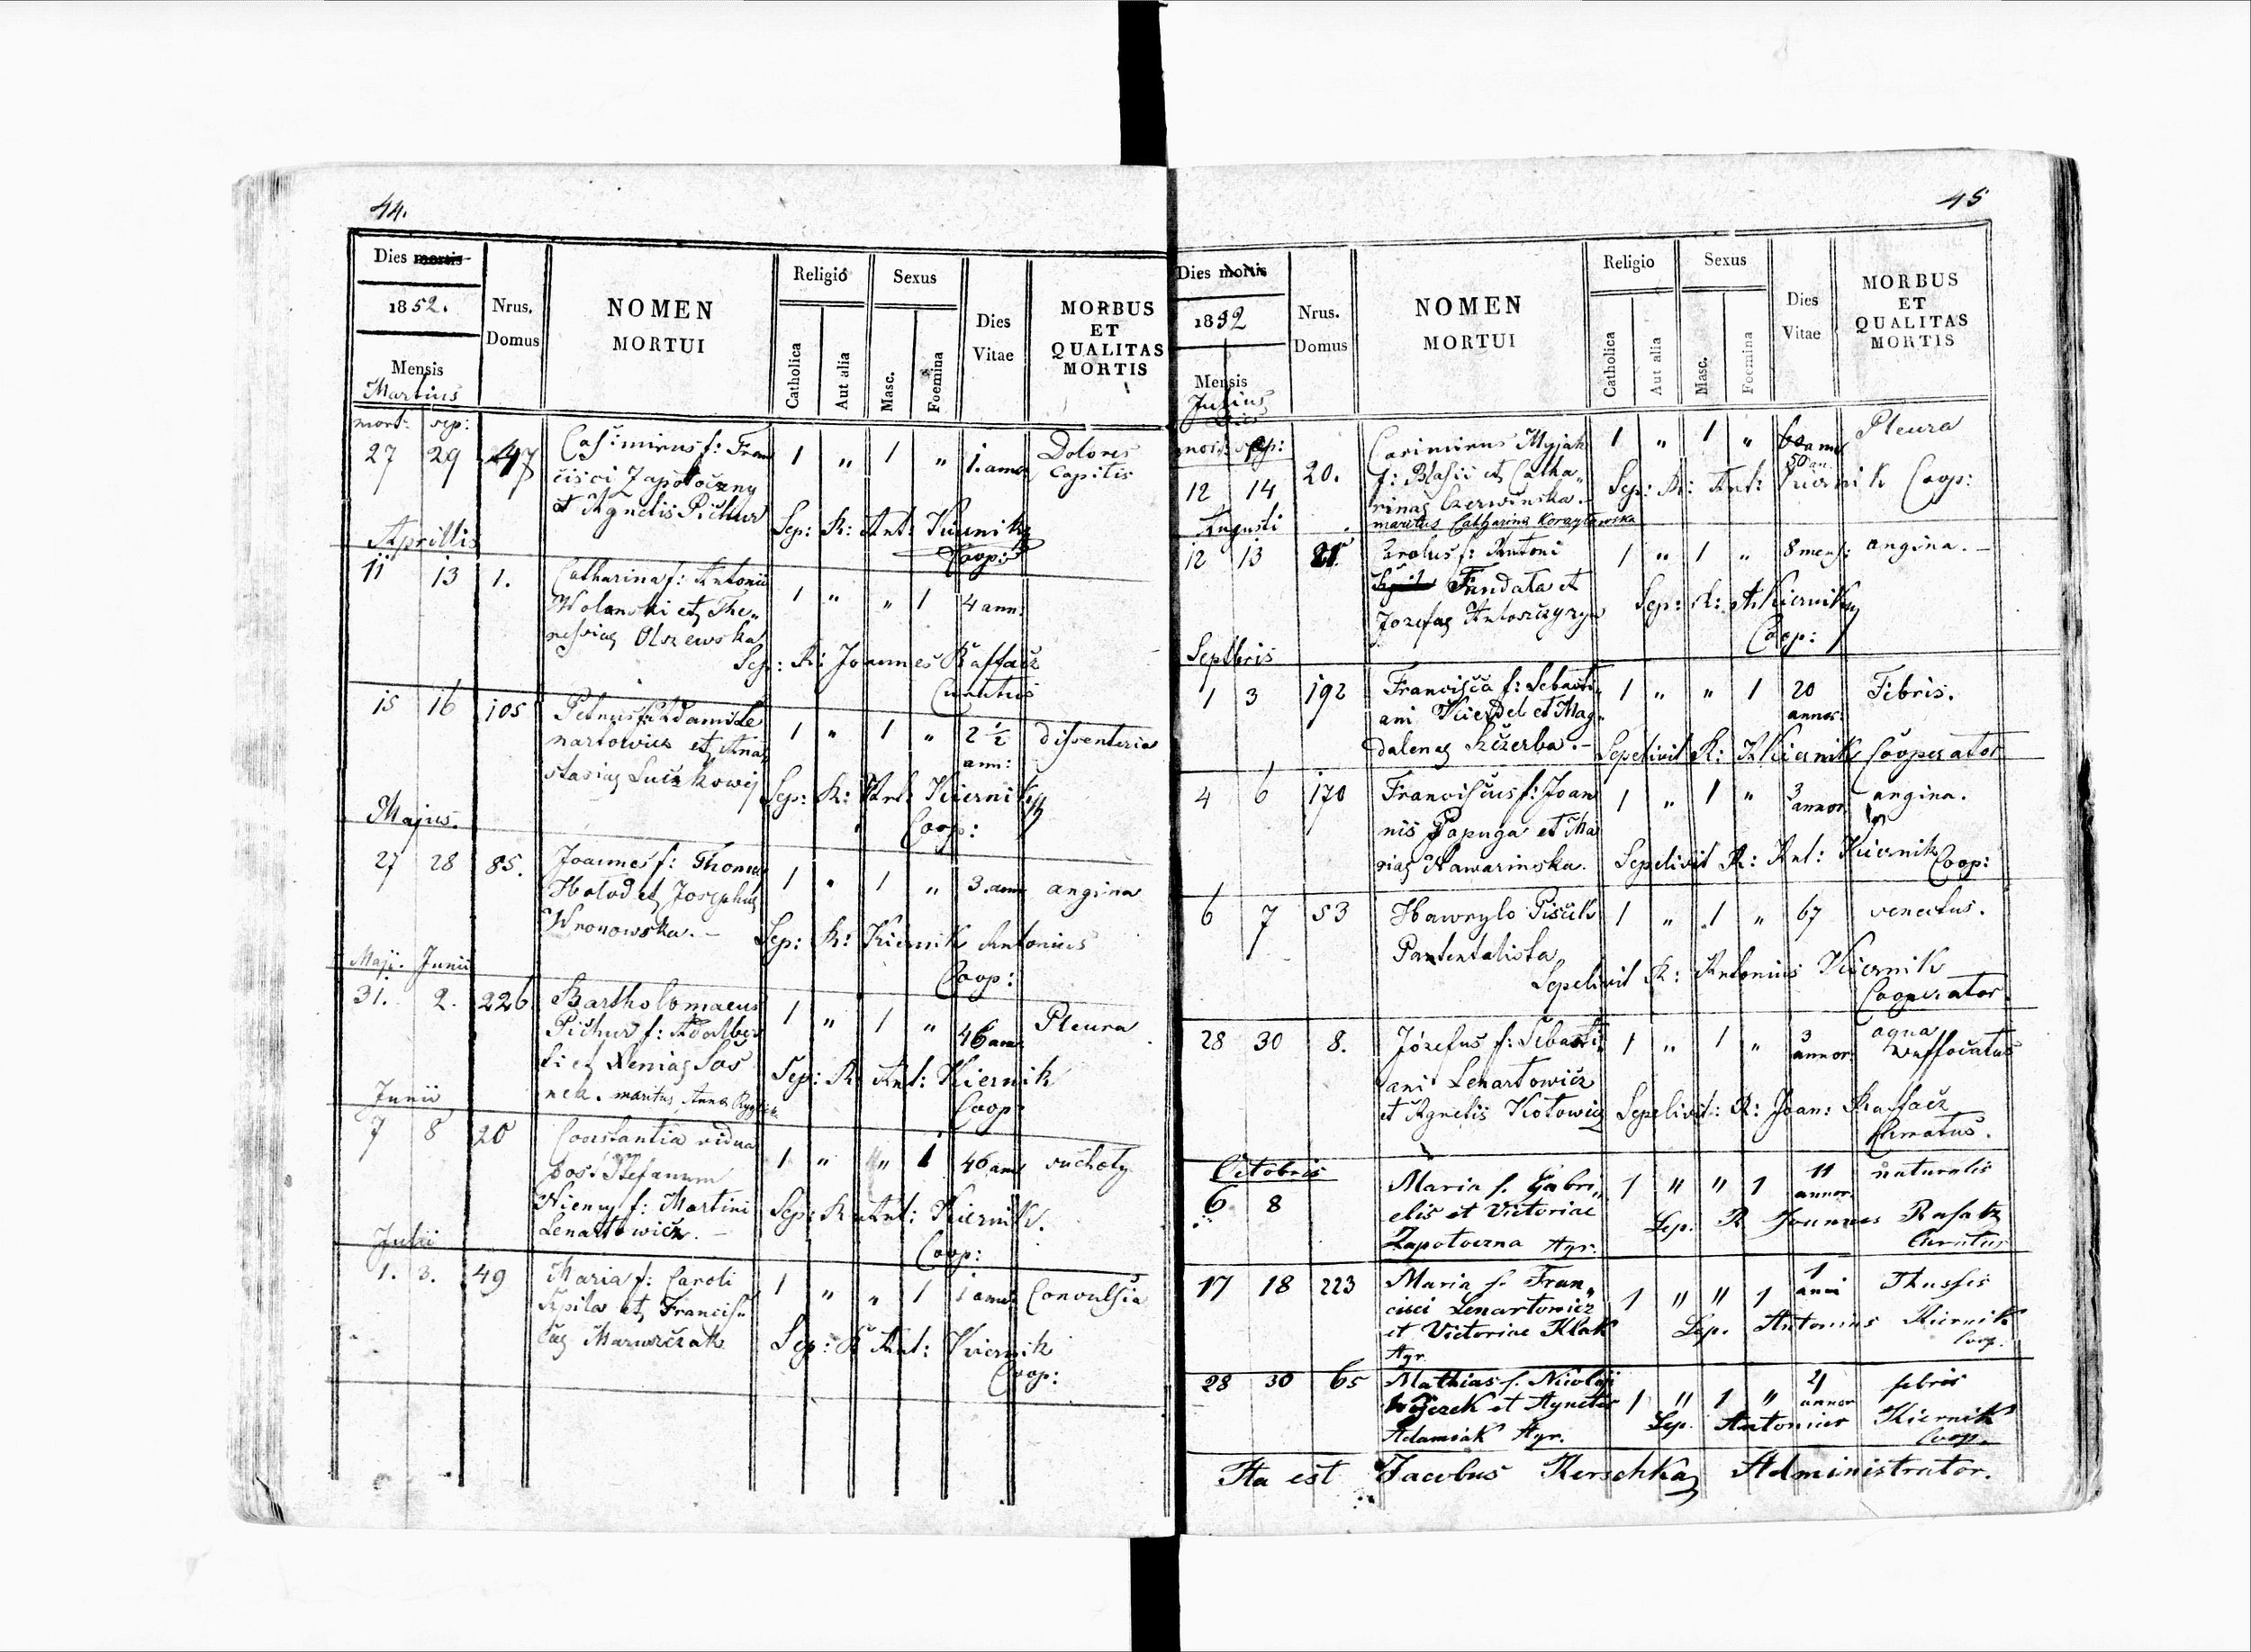 44.
Dies mortis
1852.
Mensis
Martius
Nrus.
Domus
NOMEN
MORTUI
Religio
Catholica
Aut alia
Sexus
Masc.
Foemina
Dies
Vitae
MORBUS
ET
QUALITAS
MORTIS
mort: sep:
27 29 47 Casimirus f: Fran 1 „ 1 „ 1. anni Dolores
cisci Zapotoczny Capitis
et Agnetis Pichur Sep: R: Ant: Kiernik
Coop:
Aprillis
11 13 1. Catharina f: Antonii 1 „ „ 1 4 ann:
Wolanski et The„
resiae Olszewska
Sep: R: Joannes Raffacz
Curatus
15 16 105 Petrus f: Adami Le 1 „ 1 „ 2 ½ dissenteria
nartowicz et Ana ann:
stasiae Luczkowij Sep: R: Ant: Kiernik
Coop:
Majus.
27 28 85. Joannes f: Thomae 1 „ 1 „ 3. ann angina
Holod et Josephae
Wronowska. Sep: R: Kiernik Antonius
Coop:
Maji. Junii
31. 2. 226 Bartholomaeus 1 „ 1 „ 46 ann Pleura
Pichur f: Adalber
ti et Xeniae Sos Sep: R Ant: Kiernik
nek. maritus Anna Coop:
Junii
7 8 20 Constantia vidua 1 „ „ 1 46 ann suchoty
pos: Stefanum
Wieny f: Martini Sep: R Ant: Kiernik.
Lenartowicz. Coop:
Julii
1. 3. 49 Maria f: Caroli 1 „ „ 1 1 anni Convulsia
Szpila et Francis„
cae Marwszak Sep: R Ant: Kiernik
Coop:
45
Dies mortis
1852
Mensis
Julius
Nrus.
Domus
NOMEN
MORTUI
Religio
Catholica
Aut alia
Sexus
Masc.
Foemina
Dies
Vitae
MORBUS
ET
QUALITAS
MORTIS
mort: sep:
12 14 20. Casimirus Myjak 1 „ 1 „ 60 ann Pleura
f: Blasii et Catha„ 50 an.
rinae Czerwinska. Sep: R: Ant: Kiernik Coop:
maritus Catharina
Augusti
12 13 21. Carolus f: Antoni 1 „ 1 „ 8 mens: angina.
Fundala et
Jozefae Antoszczyzyn Sep: R: A Kiernik
Coop:
Septbris
1 3 192 Francisca f: Sebasti„ 1 „ „ 1 20 Febris.
ani Kierdel et Mag„ annor:
dalenae Szczerba. Sepelivit R: A Kiernik Cooperator
4 6 170 Franciscus f: Joan 1 „ 1 „ 3 angina.
nis Papuga et Ma annor
riae Nawarinska. Sepelivit R: Ant: Kiernik Coop:
6 7 53 Hawrylo Pisiuk 1 „ 1 „ 67 senectus.
Pantentalista
Sepelivit R: Antonius Kiernik
Cooperator.
28 30 8. Józefus f: Sebasti„ 1 „ 1 „ 3 aqua
ani Lenartowicz annor: suffocatus
et Agnetis Kotowicz Sepelivit: R: Joan: Raffacz
Curatus.
Octobris
6 8 Maria f. Gabri„ 1 „ „ 1 11 naturalis
elis et Victoriae annor.
Zapotoczna Agr. Sep. R Joannes Rafatz
Curatus
17 18 223 Maria f. Fran„ 1 „ „ 1 1 Thussis
cisci Lenartowicz anni
et Victoriae Klak Sep. Antonius Kiernik
Agr. Coop.
28 30 65 Mathias f. Nicolai 1 „ 1 „ 21 febris
Wojczek et Agnetis annor
Adamiak Agr. Sep. Antonius Kiernik
Coop.
Ita est Jacobus Kerschka Administrator.